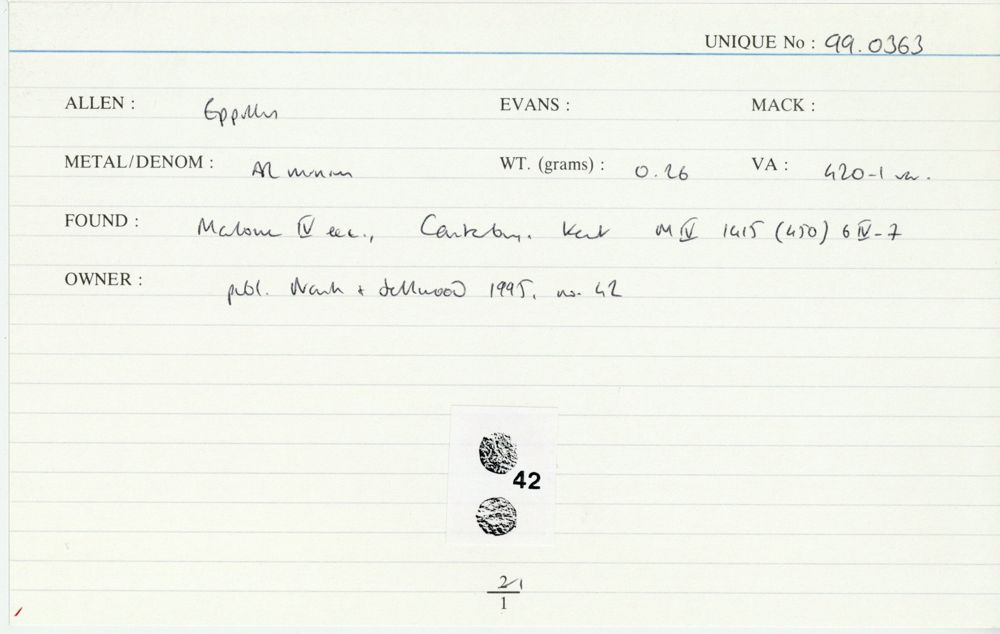 UNIQUE No : 99.0363
ALLEN : Eppillus EVANS : MACK :
METAL/DENOM : AR minim WT. (grams) : 0.26 VA : 420-1 var.
FOUND : Marlowe IV exc., Canterbury, Kent M IV 1415 (450) 6 IV-7
OWNER : publ. Nash + Sellwood 1995, no. 42
42
21
1